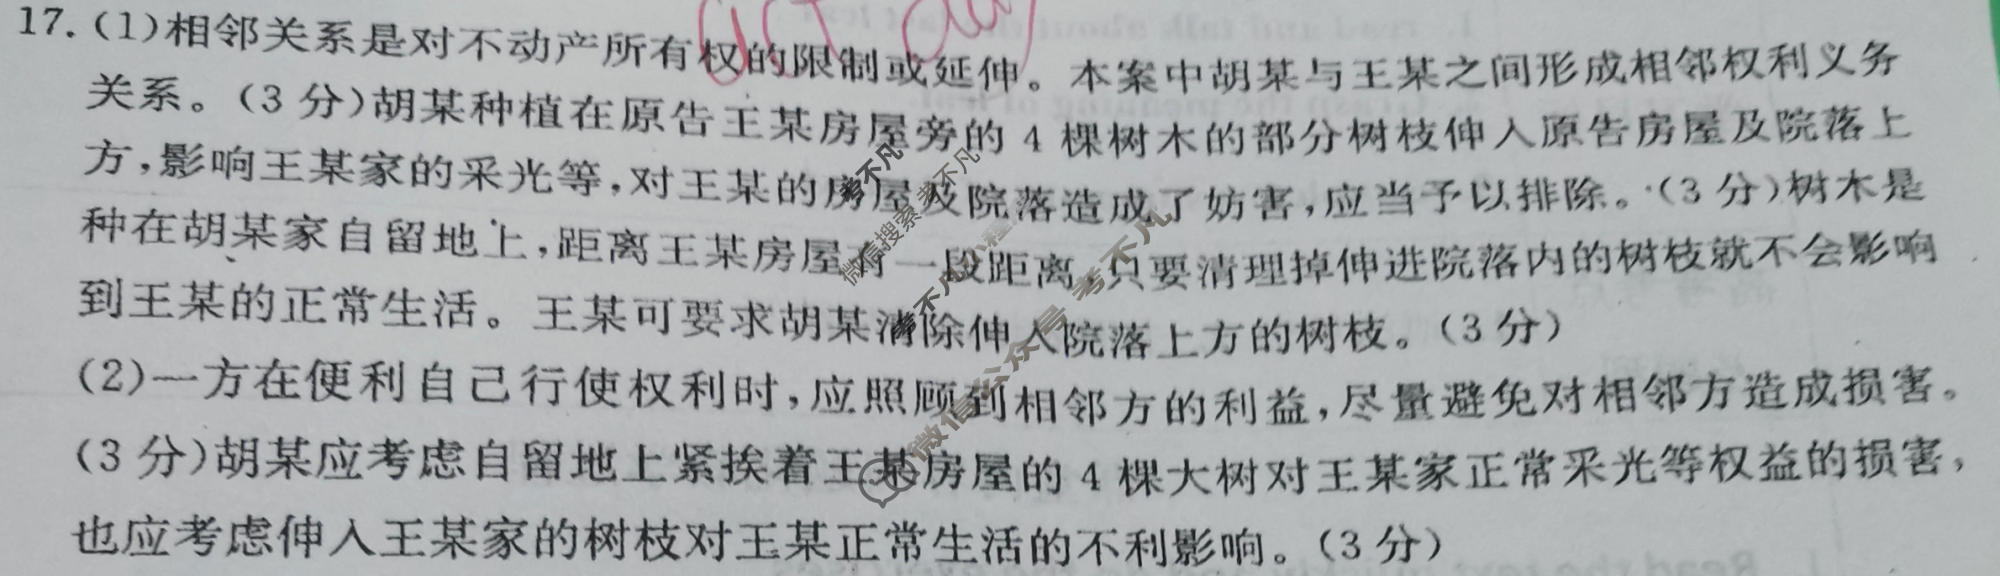 17.(1)相邻关系是对不动产所有权的限制或延伸。本案中胡某与王某之间形成相邻权利义务
关系。(3分)胡某种植在原告王某房屋旁的4棵树木的部分树枝伸入原告房屋及院落上
方,影响王某家的采光等,对王某的房屋及院落造成了妨害,应当予以排除。(3分)树木是
种在胡某家自留地上,距离王某房屋有一段距离,只要清理掉伸进院落内的树枝就不会影响
到王某的正常生活。王某可要求胡某清除伸入院落上方的树枝。(3分)
(2)一方在便利自己行使权利时,应照顾到相邻方的利益,尽量避免对相邻方造成损害。
(3分)胡某应考虑自留地上紧挨着王某房屋的4棵大树对王某家正常采光等权益的损害,
也应考虑伸入王某家的树枝对王某正常生活的不利影响。(3分)
考不凡
微信搜索 考不凡
微信公众号 考不凡